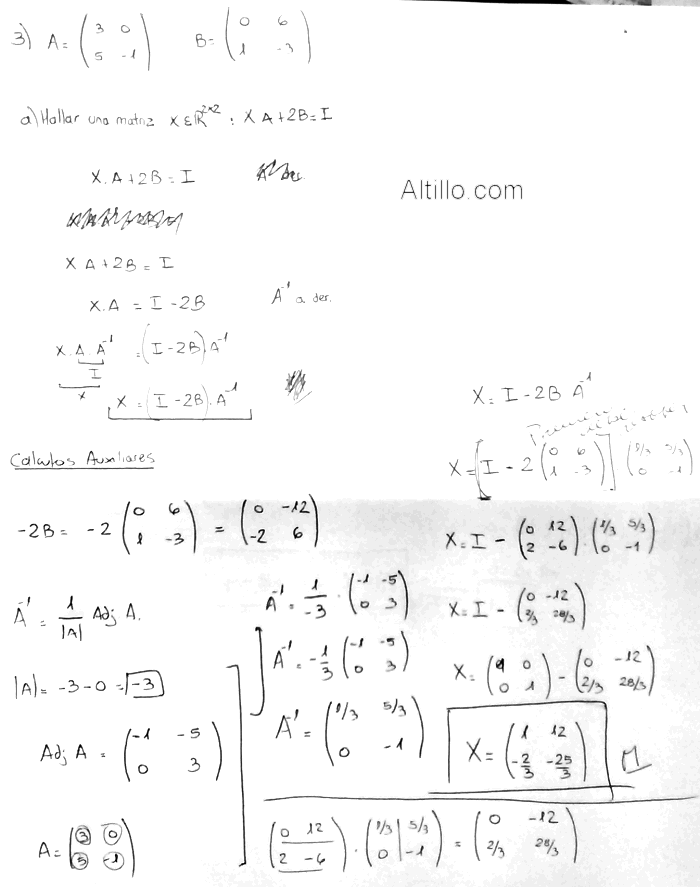 3) A = ( 3 0 ; 5 -1 )   B = ( 0 6 ; 1 -3 )
a) Hallar una matriz X ε R^2x2 : X A + 2B = I
X.A + 2B = I
Altillo.com
X A + 2B = I
X.A = I - 2B   A^-1 a der.
X.A.A^-1 = (I - 2B).A^-1
I
X
X = (I - 2B).A^-1
Calculos Auxiliares
-2B = -2 ( 0 6 ; 1 -3 ) = ( 0 -12 ; -2 6 )
A^-1 = 1/|A| Adj A.
|A| = -3 - 0 = -3
Adj A = ( -1 -5 ; 0 3 )
A = ( 3 0 ; 5 -1 )
A^-1 = 1/-3 . ( -1 -5 ; 0 3 )
A^-1 = -1/3 ( -1 -5 ; 0 3 )
A^-1 = ( 1/3 5/3 ; 0 -1 )
X = I - 2B A^-1
X = [ I - 2 ( 0 6 ; 1 -3 ) ] ( 1/3 5/3 ; 0 -1 )
X = I - ( 0 12 ; 2 -6 ) . ( 1/3 5/3 ; 0 -1 )
X = I - ( 0 -12 ; 2/3 28/3 )
X = ( 1 0 ; 0 1 ) - ( 0 -12 ; 2/3 28/3 )
X = ( 1 12 ; -2/3 -25/3 )
( 0 12 ; 2 -6 ) . ( 1/3 5/3 ; 0 -1 ) = ( 0 -12 ; 2/3 28/3 )